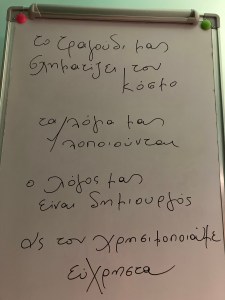 το τραγούδι μας
σχηματίζει τον
κόσμο
τα λόγια μας
υλοποιούνται
ο λόγος μας
είναι δημιουργός
Ας τον χρησιμοποιούμε
εύχρηστα